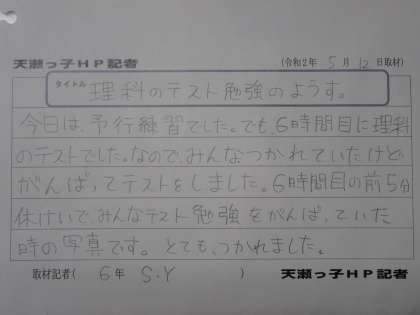 天瀬っ子HP記者
(令和2年 5月 12日取材)
タイトル 理科のテスト勉強のようす。
今日は、予行練習でした。でも、6時間目に理科
のテストでした。なので、みんなつかれていたけど
がんばってテストをしました。6時間目の前5分
休けいで、みんなテスト勉強をがんばっていた
時の写真です。とても、つかれました。
取材記者( 6年 S.Y )
天瀬っ子HP記者